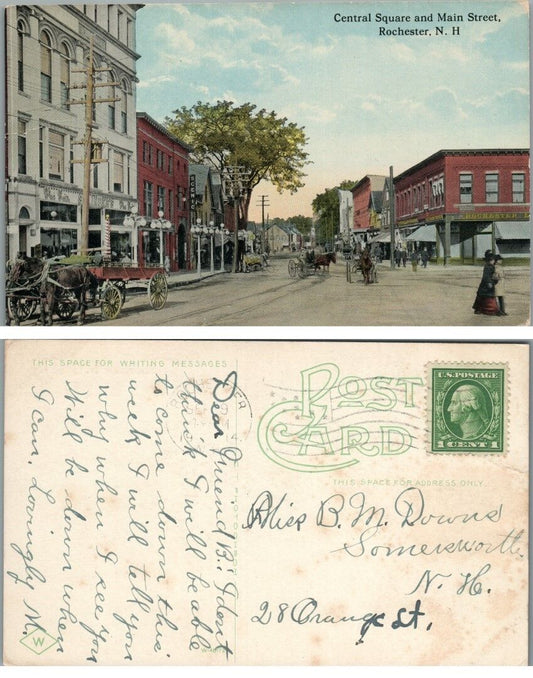 Central Square and Main Street,
Rochester, N. H
THIS SPACE FOR WRITING MESSAGES
POST
CARD
THIS SPACE FOR ADDRESS ONLY
U.S. POSTAGE
1 CENT 1
Dear Friend B! I dont
think I will be able
to come down this
week I will tell you
why when I see you
Will be down when
I can. Lovingly M.
Miss B. M. Downs
Somersworth
N. H.
28 Orange St.
W